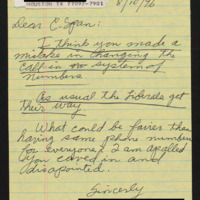 HOUSTON TX 77093-7901
8/10/96
Dear C. Span:
I think you made a
mistake in changing the
call in system of
numbers
As usual the Liberals get
their way
What could be fairer than
having same phone number
for everyone? I am apalled
you caved in and
disapointed.
Sincerely